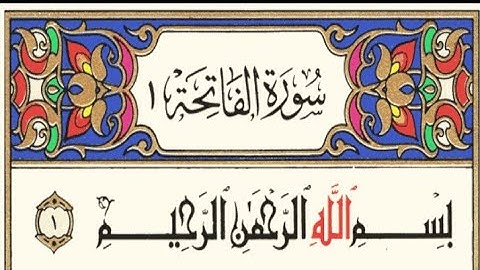 سُورَةُ الفَاتِحَةِ ١
بِسْمِ ٱللَّهِ ٱلرَّحْمَٰنِ ٱلرَّحِيمِ ١